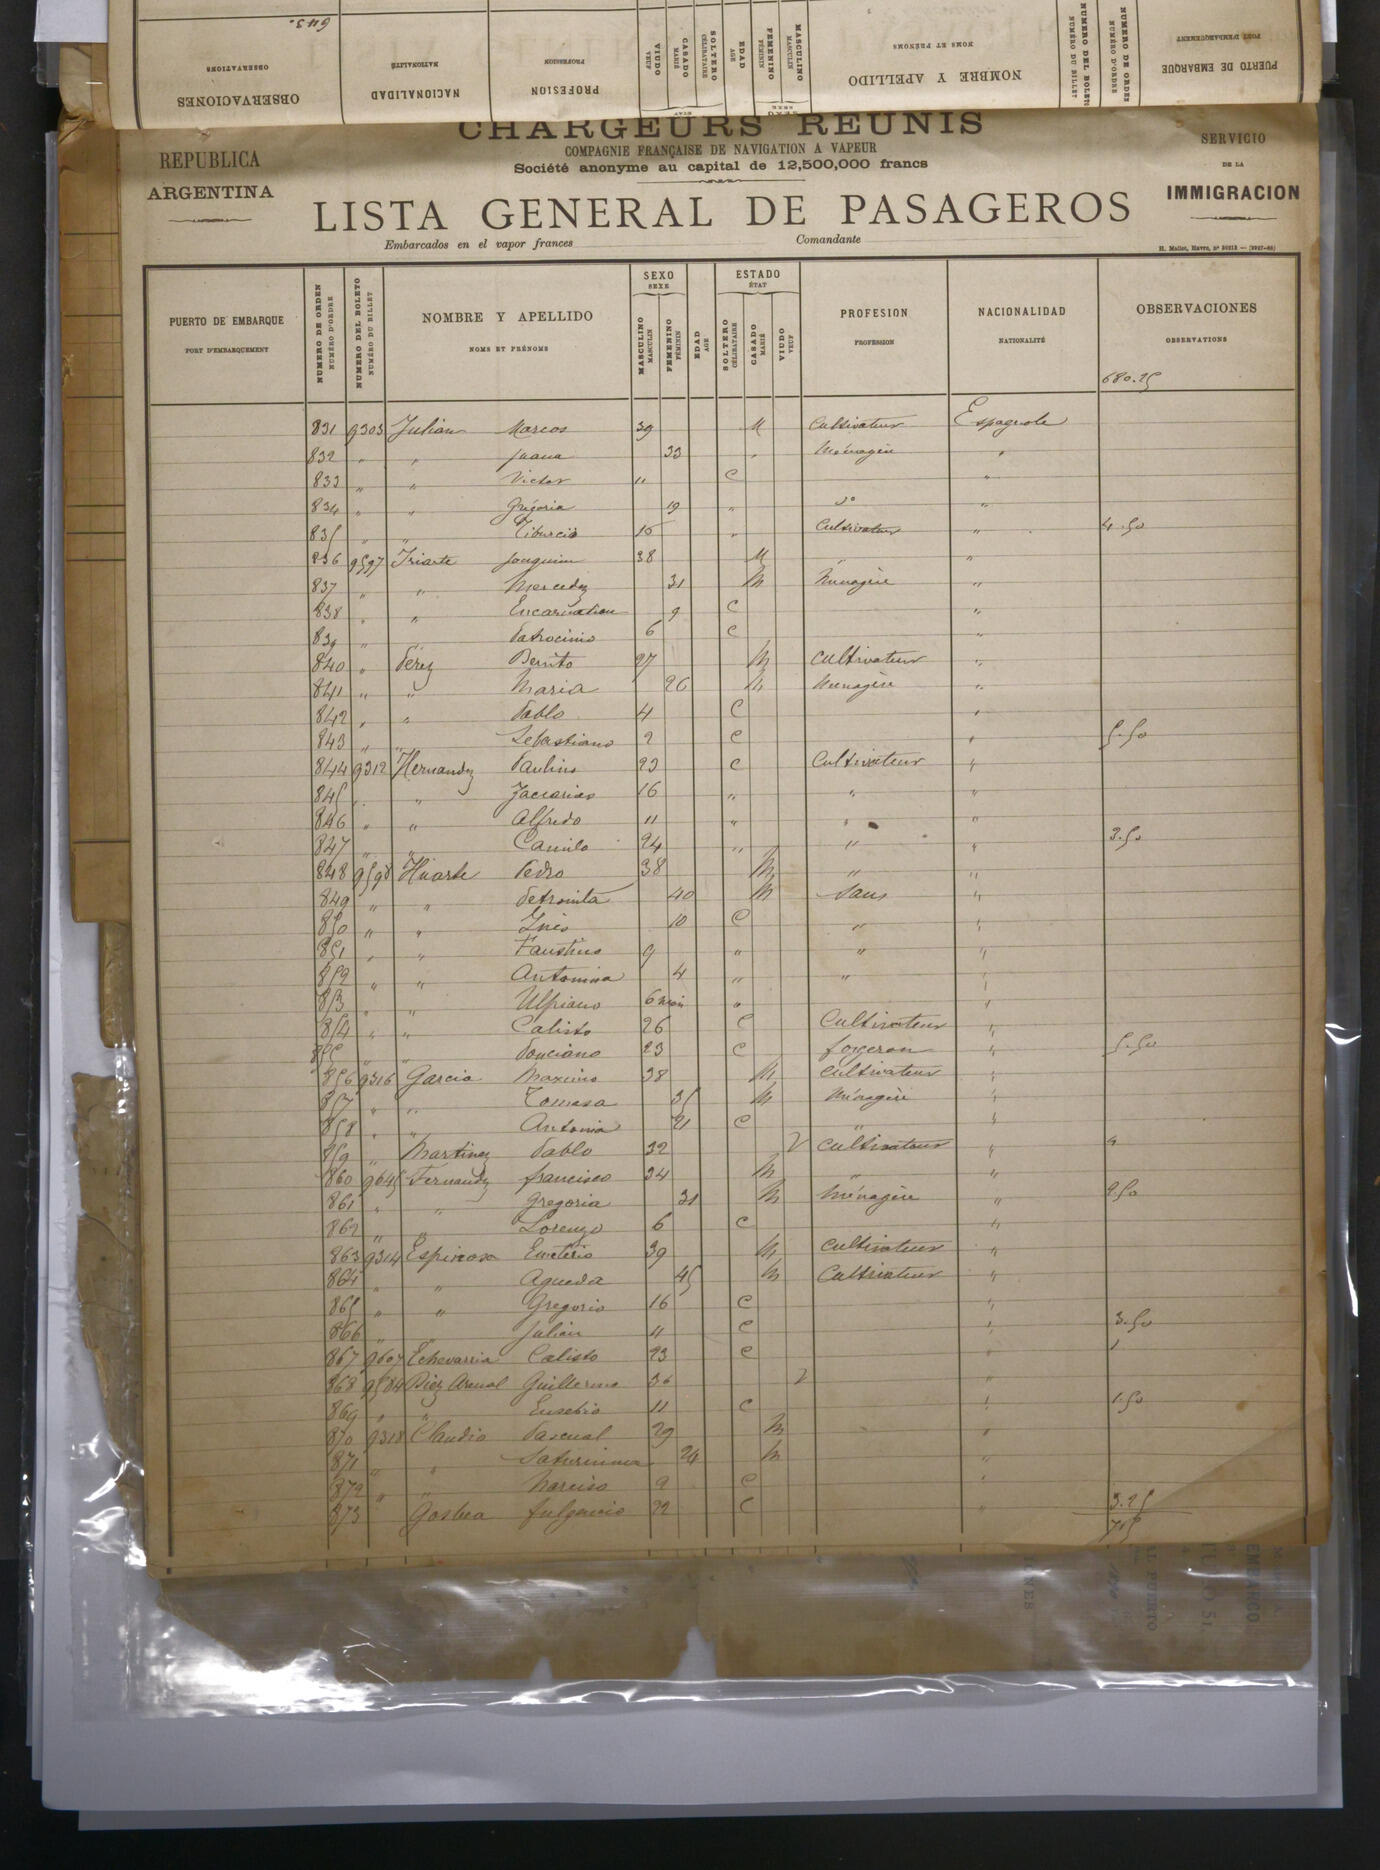 643.
OBSERVACIONES
OBSERVATIONS
NACIONALIDAD
NATIONALITÉ
PROFESION
PROFESSION
VIUDO
VEUF
CASADO
MARIÉ
SOLTERO
CÉLIBATAIRE
EDAD
AGE
FEMENINO
FÉMININ
MASCULINO
MASCULIN
NOMBRE Y APELLIDO
NOMS ET PRÉNOMS
NUMERO DEL BOLETO
NUMÉRO DU BILLET
NUMERO DE ORDEN
NUMÉRO D'ORDRE
PUERTO DE EMBARQUE
PORT D'EMBARQUEMENT
CHARGEURS REUNIS
COMPAGNIE FRANÇAISE DE NAVIGATION A VAPEUR
Société anonyme au capital de 12,500,000 francs
REPUBLICA
ARGENTINA
SERVICIO
DE LA
IMMIGRACION
LISTA GENERAL DE PASAGEROS
Embarcados en el vapor frances
Comandante
PUERTO DE EMBARQUE
PORT D'EMBARQUEMENT
NUMERO DE ORDEN
NUMÉRO D'ORDRE
NUMERO DEL BOLETO
NUMÉRO DU BILLET
NOMBRE Y APELLIDO
NOMS ET PRÉNOMS
SEXO
SEXE
MASCULINO
MASCULIN
FEMENINO
FÉMININ
EDAD
AGE
ESTADO
ÉTAT
SOLTERO
CÉLIBATAIRE
CASADO
MARIÉ
VIUDO
VEUF
PROFESION
PROFESSION
NACIONALIDAD
NATIONALITÉ
OBSERVACIONES
OBSERVATIONS
680.25
831 9303 Julian Marcos 39 M Cultivateur Espagnole
832 " " Juana 33 " Ménagère "
833 " " Victor 11 C "
834 " " Grégoria 19 " do
835 " " Tiburcio 15 " Cultivateur " 4.50
836 9597 Iriarte Joaquim 38 M " "
837 " " Mercedez 31 M Menagère "
838 " " Encarnation 9 C "
839 " " Patrocinio 6 C "
840 " Perez Benito 27 M Cultivateur "
841 " " Maria 26 M Menagère "
842 " " Pablo 4 C "
843 " " Sebastiano 2 C " 5.50
844 9312 Hernandez Paulino 23 C Cultivateur "
845 " " Zaccarias 16 " " "
846 " " Alfredo 11 " " "
847 " " Camilo 24 " " " 3.50
848 9598 Huarte Pedro 38 M " "
849 " " Petronita 40 M Sans "
850 " " Inès 10 C " "
851 " " Faustino 9 " " "
852 " " Antonina 4 " " "
853 " " Ulpiano 6 mois " "
854 " " Calisto 26 C Cultivateur "
855 " " Ponciano 23 C forgeron " 5.50
856 9316 Garcia Maximo 38 M Cultivateur "
857 " " Tomasa 35 M Ménagère "
858 " " Antonia 21 C " "
859 " Martinez Pablo 32 V Cultivateur " 4
860 9645 Fernandez francisco 34 M "
861 " " Gregoria 31 M Ménagère " 2.50
862 " " Lorenzo 6 C "
863 9314 Espinosa Emeterio 39 M Cultivateur "
864 " " Agueda 45 M Cultivateur "
865 " " Gregorio 16 C "
866 " " Julian 11 C " 3.50
867 9607 Echevarria Calisto 23 C " 1
868 9584 Diez Arenal Guillermo 36 V "
869 " " Eusebio 11 C " 1.50
870 9318 Claudio Pascual 29 M "
871 " " Saturnina 24 M "
872 " " Narciso 9 C "
873 " fulgencio 22 C " 3.25
715